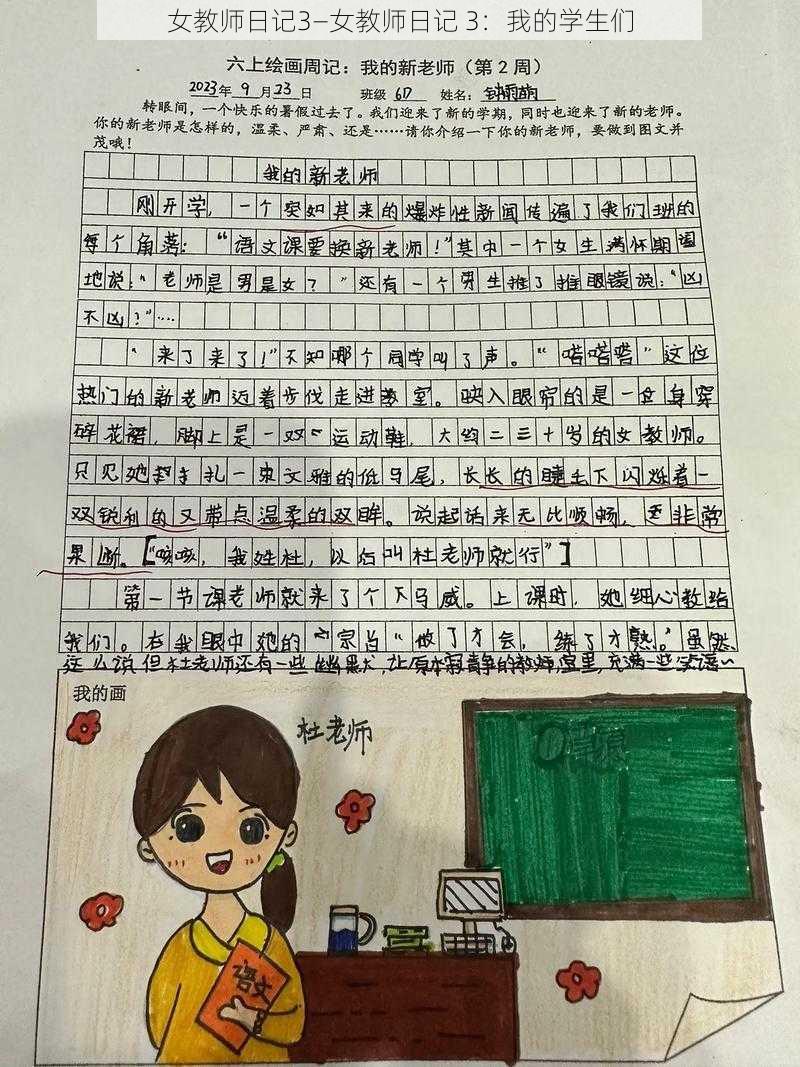 女教师日记3—女教师日记 3：我的学生们
六上绘画周记：我的新老师（第 2 周）
2023年 9 月 23 日 班级 6D 姓名：钟雨萌
转眼间，一个快乐的暑假过去了。我们迎来了新的学期，同时也迎来了新的老师。
你的新老师是怎样的，温柔、严肃、还是……请你介绍一下你的新老师，要做到图文并
茂哦！
我的新老师
刚开学，一个突如其来的爆炸性新闻传遍了我们班的
每个角落：“语文课要换新老师！”其中一个女生满怀期望
地说：“老师是男是女？”还有一个男生推了推眼镜说：“凶
不凶？”……
“来了来了！”不知哪个同学叫了声。“嗒嗒嗒”这位
热门的新老师迈着步伐走进教室。映入眼帘的是一位身穿
碎花裙，脚上是一双 运动鞋，大约二三十岁的女教师。
只见她 扎一束文雅的低马尾，长长的睫毛下闪烁着一
双锐利的又带点温柔的双眸。说起话来无比顺畅， 非常
果断。［“咳咳，我姓杜，以后叫杜老师就行”］
第一节课老师就来了个下马威。上课时，她细心教给
我们。在我眼中她的 宗旨“做了才会，练了才熟。”虽然
这么说但杜老师还有一些幽默，让原本寂静的教师室里，充满一些笑语～
我的画
杜老师
语文